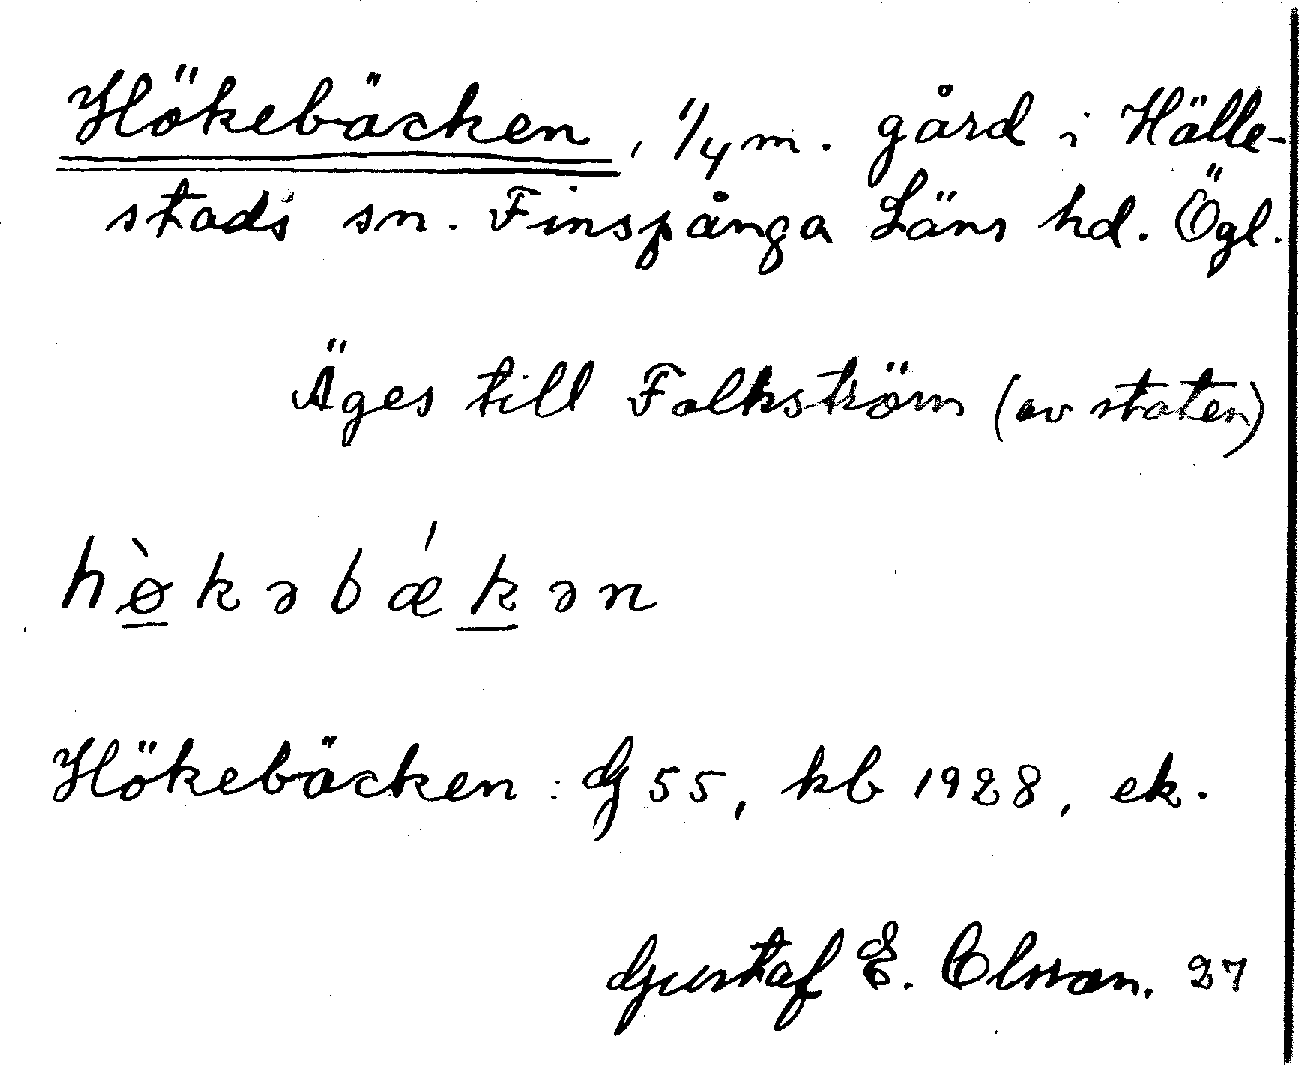 Hökebäcken, 1/4 m. gård i Hälle-
stads sn. Finspånga Läns hd. Ögl.
Äges till Folkström (av staten)
hø̀kəbǽkən
Hökebäcken : G 55, kb 1928, ek.
Gustaf E. Olsson. 27